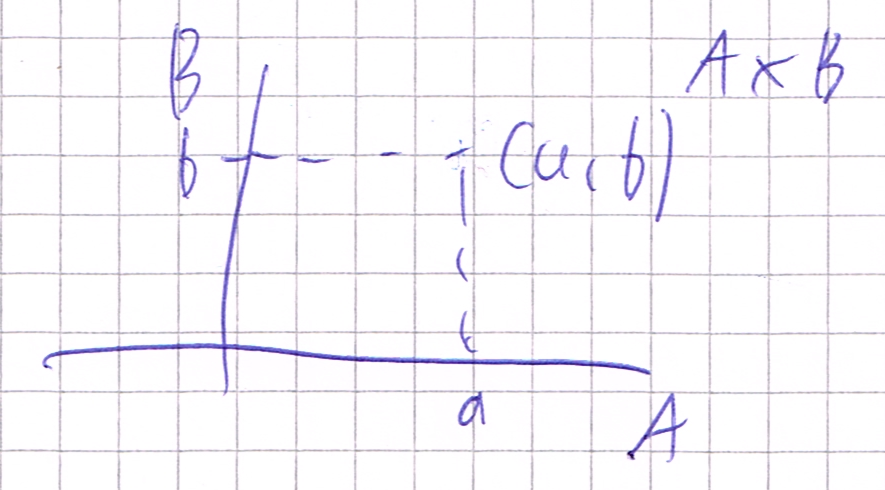 B
A × B
b
(a, b)
a
A